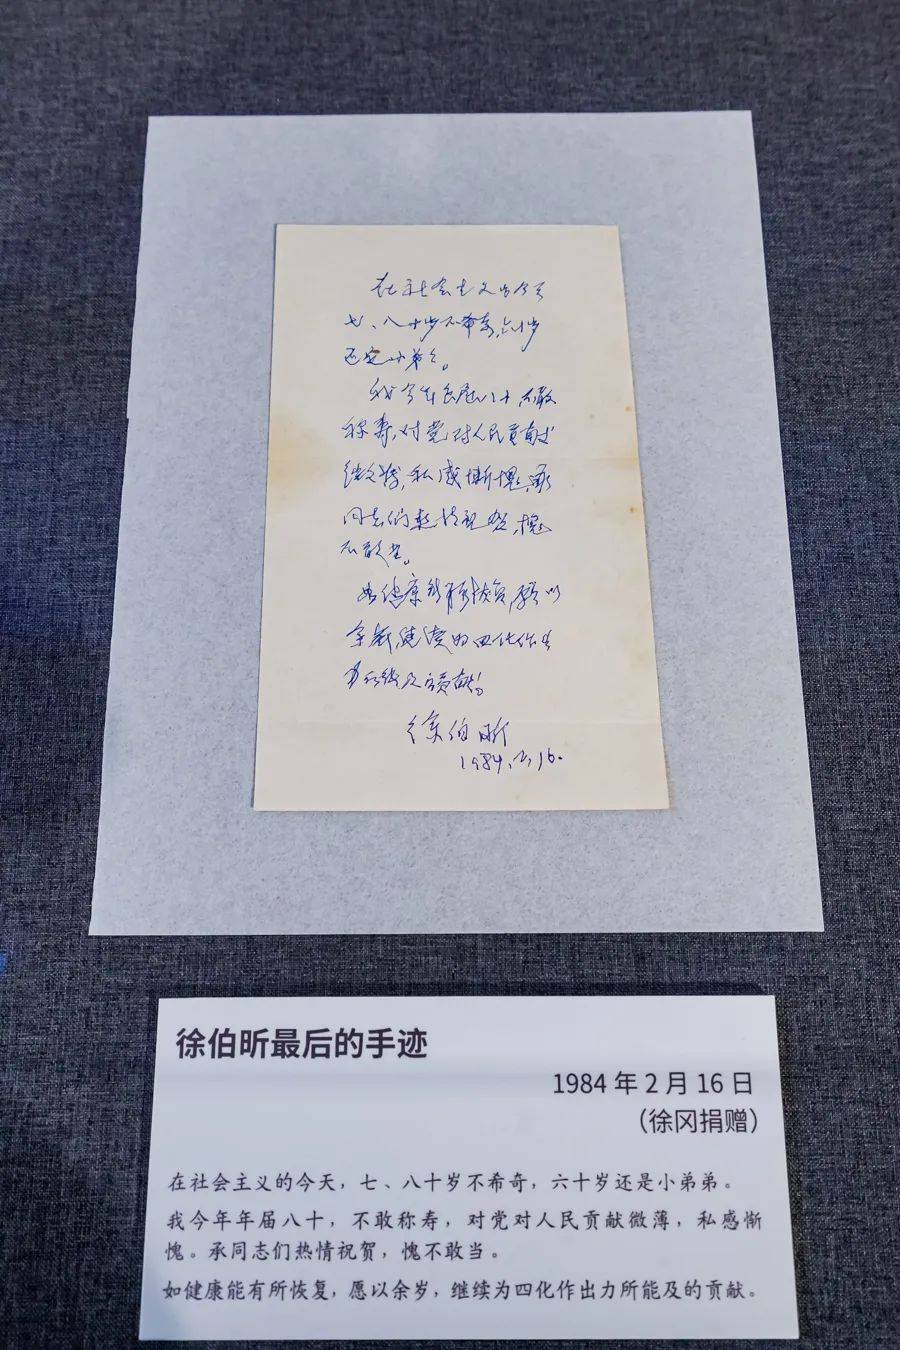 在社会主义的今天
七、八十岁不希奇，六十岁
还是小弟弟。
我今年年届八十，不敢
称寿，对党对人民贡献
微薄，私感惭愧，承
同志们热情祝贺，愧
不敢当。
如健康能有所恢复，愿以
余岁，继续为四化作出
力所能及的贡献。
徐伯昕
1984.2.16.
徐伯昕最后的手迹
1984 年 2 月 16 日
（徐冈捐赠）
在社会主义的今天，七、八十岁不希奇，六十岁还是小弟弟。
我今年年届八十，不敢称寿，对党对人民贡献微薄，私感惭
愧。承同志们热情祝贺，愧不敢当。
如健康能有所恢复，愿以余岁，继续为四化作出力所能及的贡献。